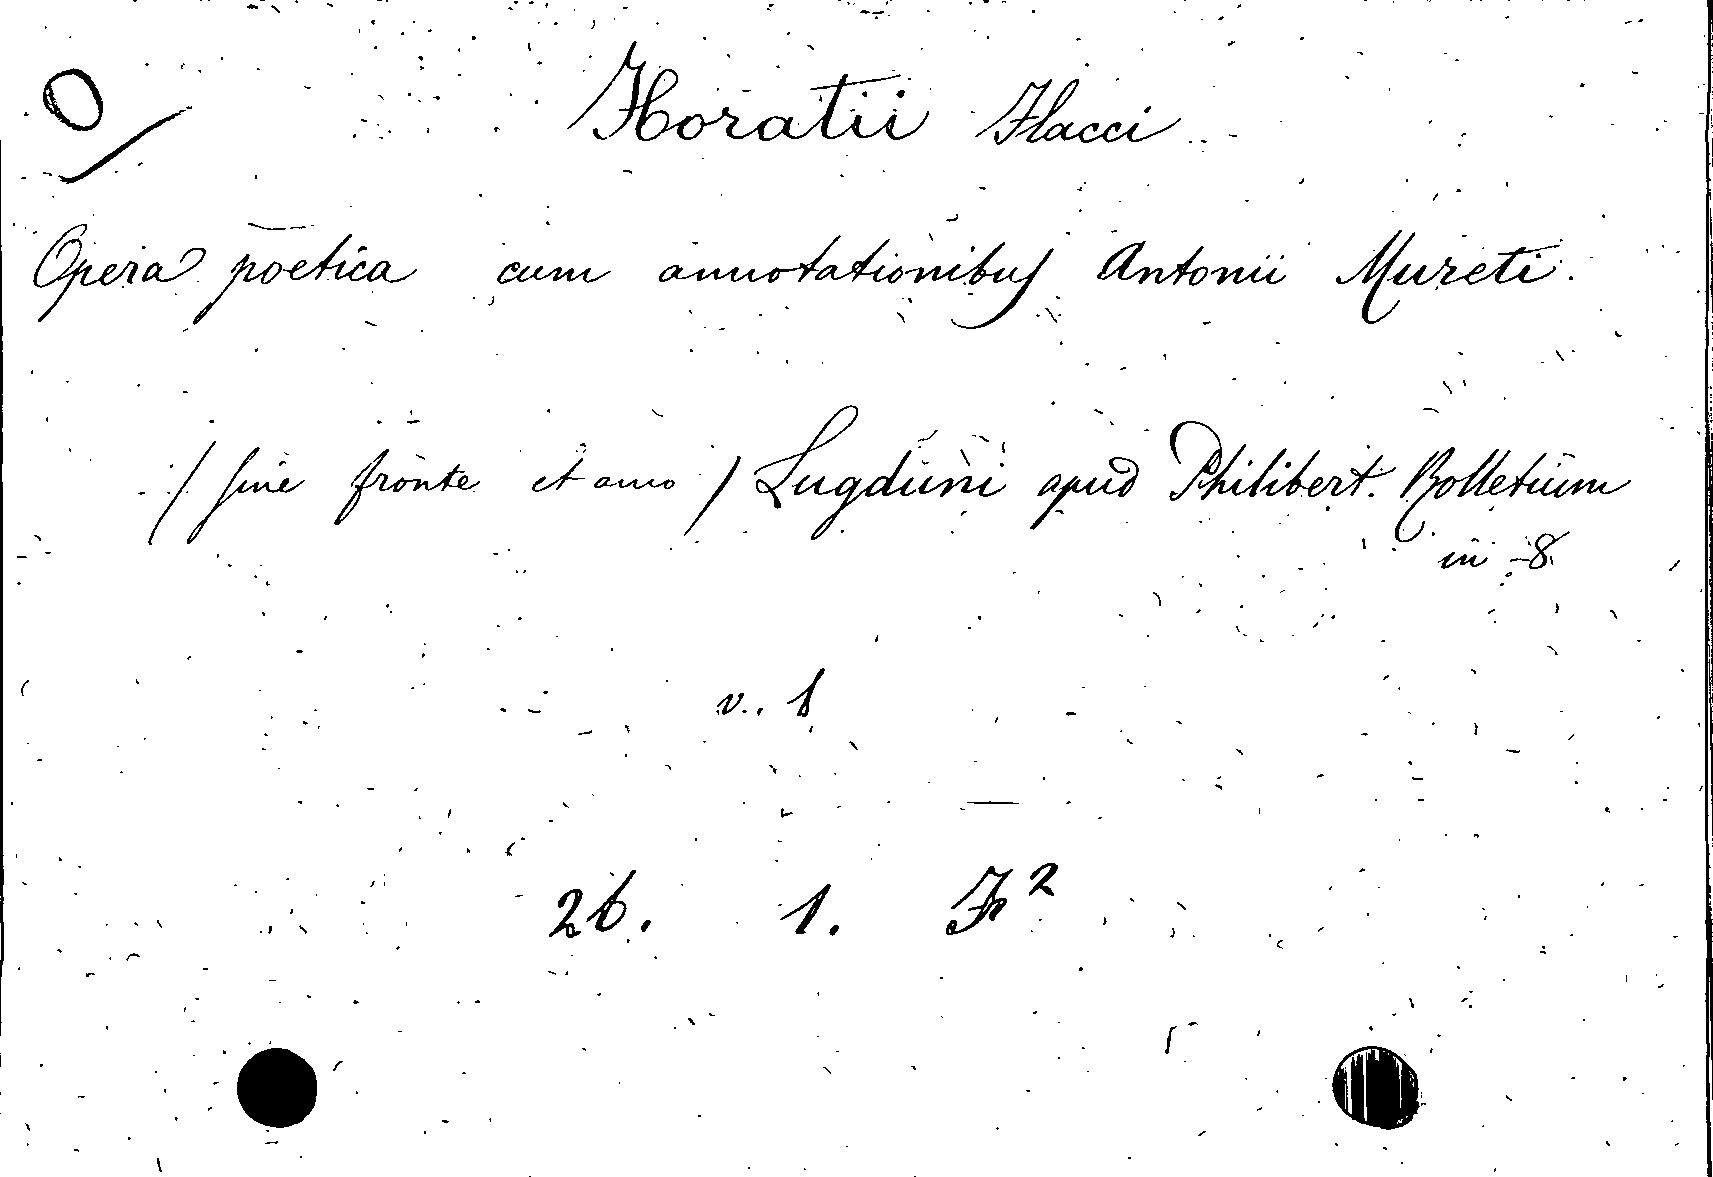 Horatii Flacci
Opera poetica cum annotationibus Antonii Mureti.
/ sine fronte et anno / Lugduni apud Philibert. Rolletium
in -8.
v. 1
26. 1. F²